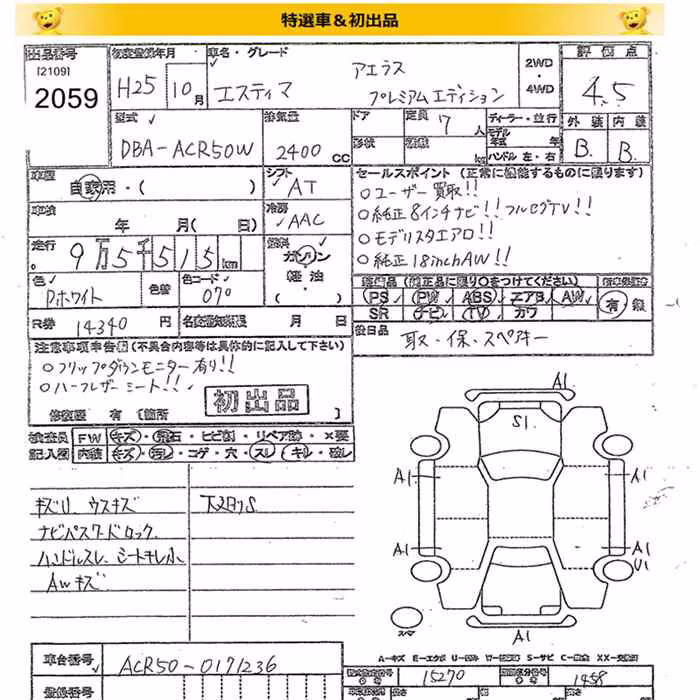 特選車&初出品
出品番号
[2109]
2059
初度登録年月
H25 10月
車名・グレード
エスティマ
アエラス
プレミアムエディション
2WD
・
4WD
評価点
4.5
外装 内装
B. B.
型式
DBA-ACR50W
排気量
2400 CC
ドア
定員
7人
ディーラー・並行
モデル年式 年
形状
積載 kg
ハンドル 左・右
車歴
自家用・( )
シフト
AT
冷房
AAC
車検
年 月( 日)
走行
9万5千515km
燃料
ガソリン
軽油
( ・ )
色
Pホワイト
色替
色コード
070
R券
14340 円
名変期限 月 日
セールスポイント (正常に機能するものに限ります)
○ユーザー買取!!
○純正8インチナビ!!フルセグTV!!
○モデリスタエアロ!!
○純正18inchAW!!
装備品(純正品に限り○をつけてください)
PS PW ABS エアB AW
SR ナビ TV カワ
有 無
後日品
取・保・スペアキー
注意事項申告欄(不具合内容等は具体的に記入して下さい)
○フリップダウンモニター有り!!
○ハーフレザーシート!!
初出品
修復歴 有〔箇所 〕
検査員 FW キズ・飛石・ヒビ割・リペア跡・×要
記入欄 内装 キズ・汚レ・コゲ・穴・スレ・キレ・破レ
キズU ウスキズ
ナビパスワードロック
ハンドルスレ シートキレ小
AWキズ
A1
S1
A1
A1
A1
A1
U1
A1
スペア
A-キズ E-エクボ U-凹み W-波 S-サビ C-腐食 XX-交換済
車台番号
ACR50-0171236
登録番号
型式指定番号
15270
類別区分番号
1458